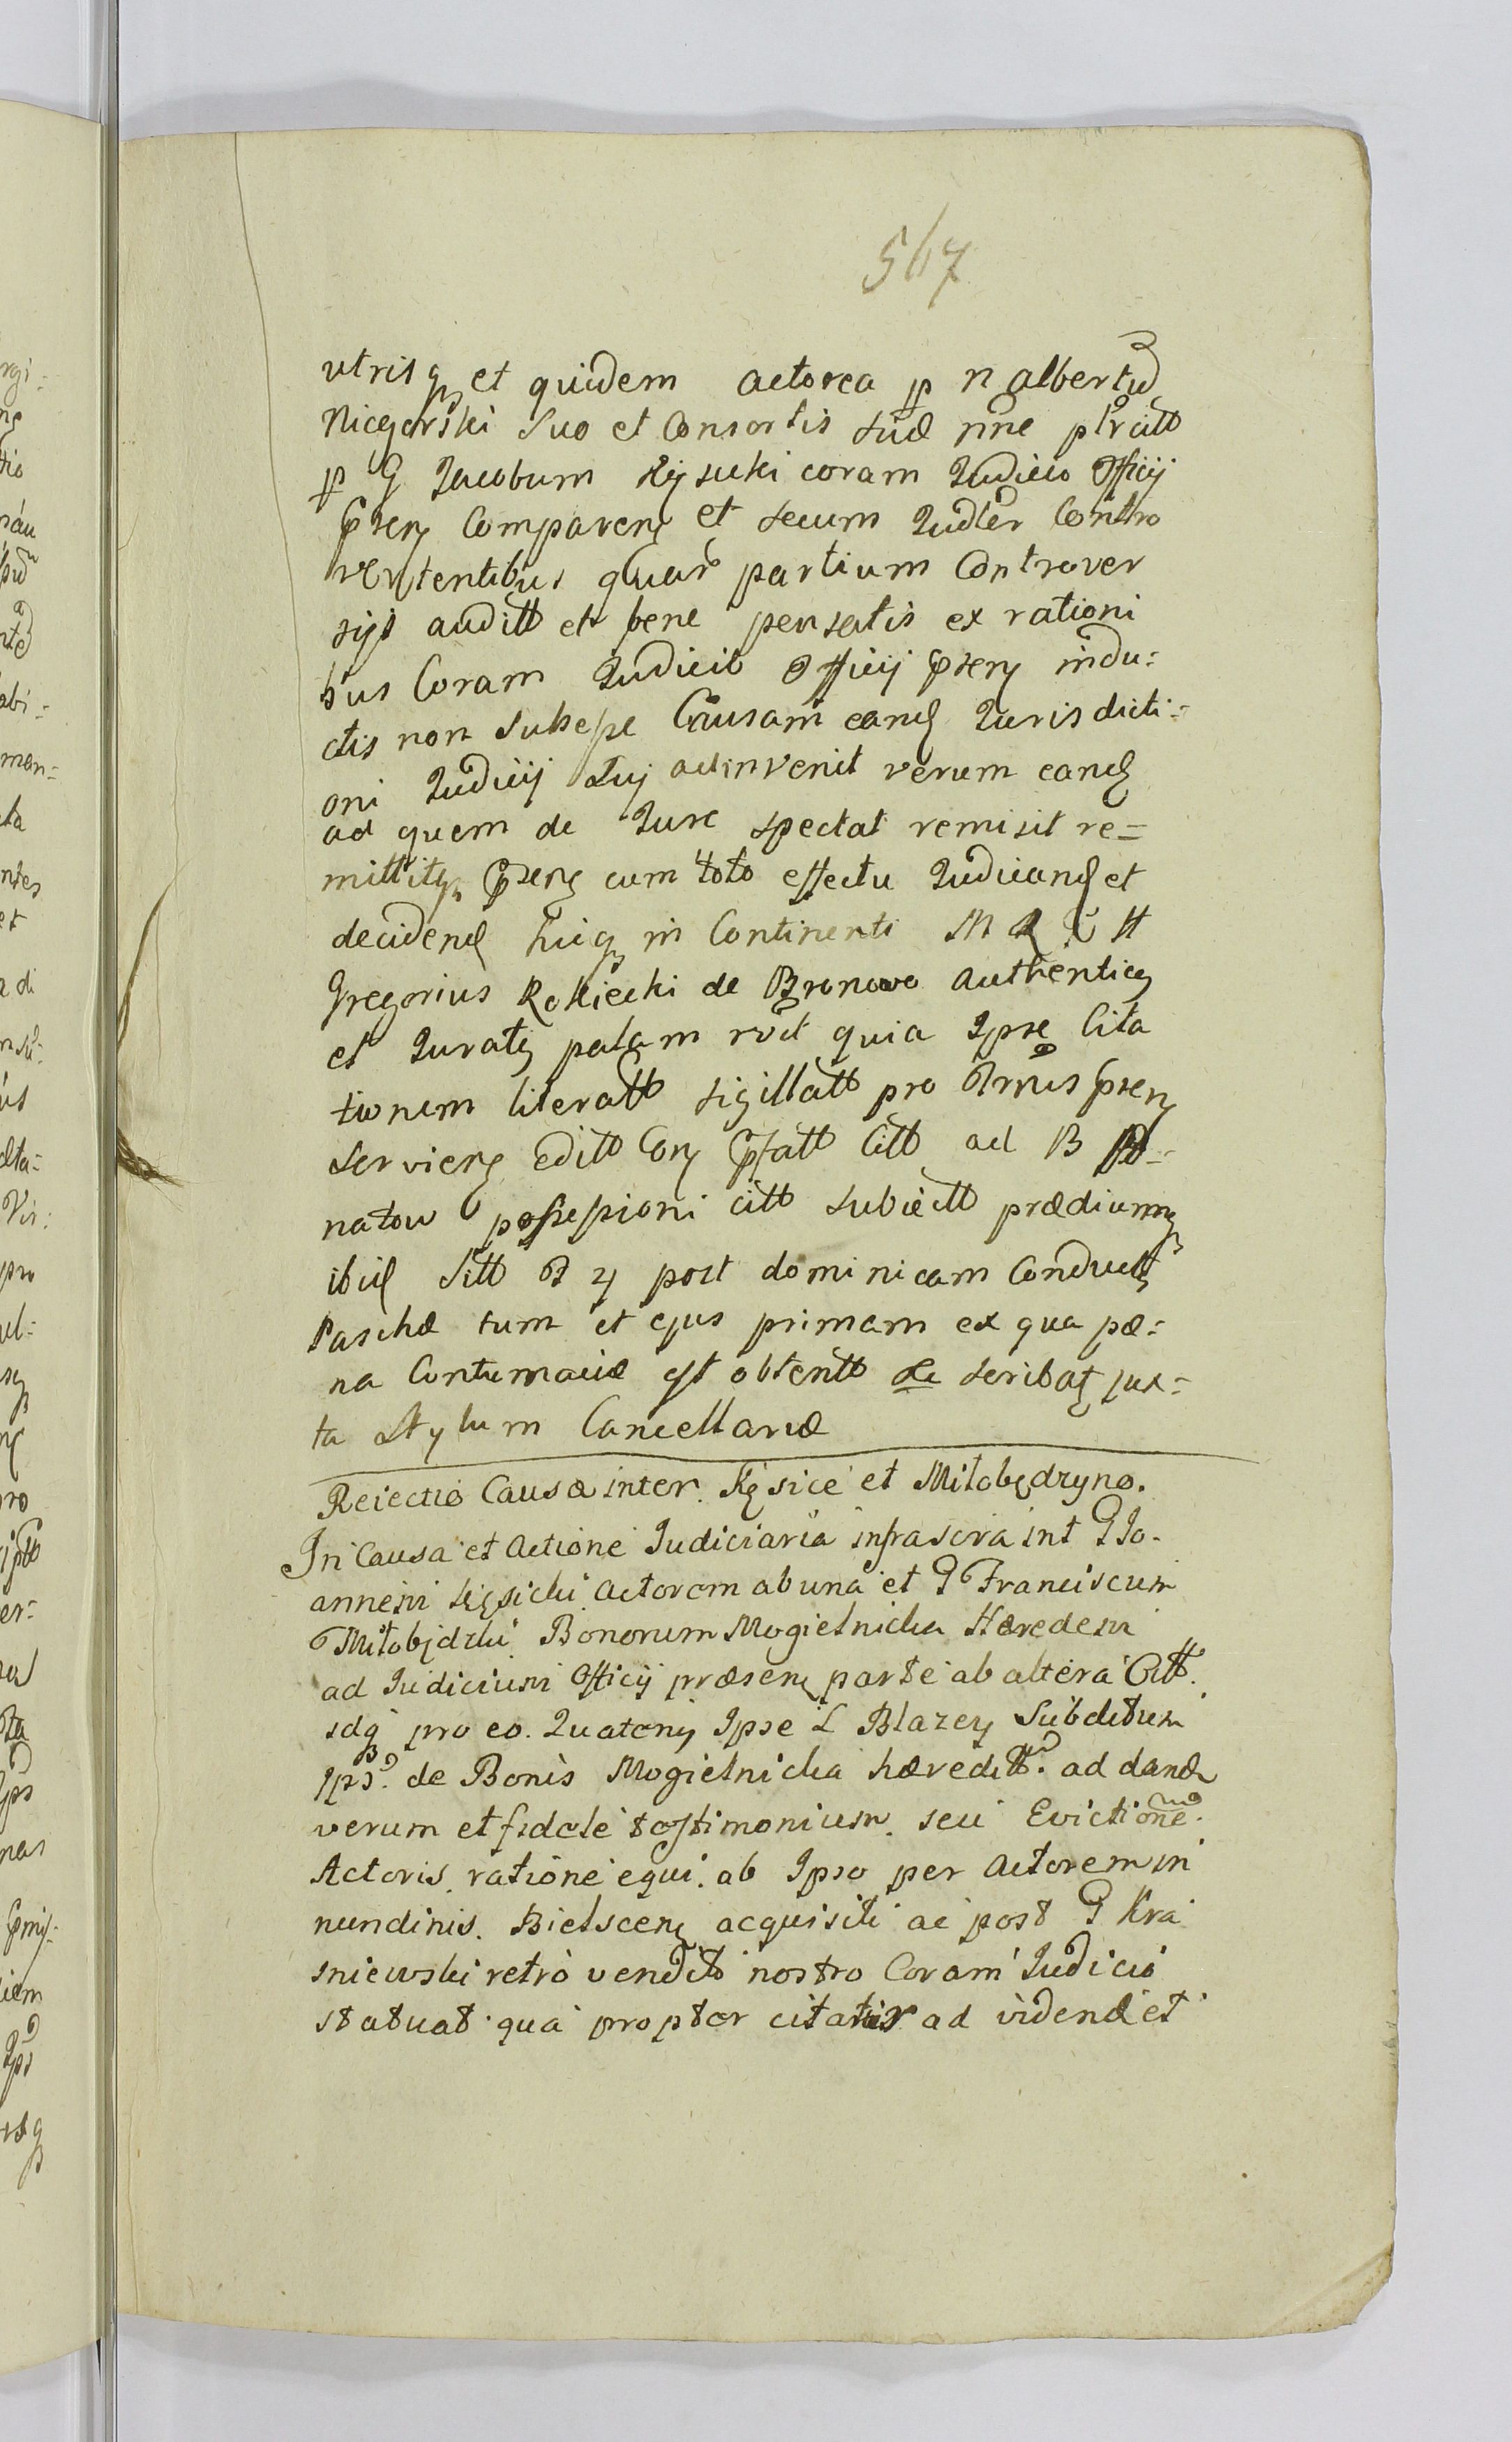 567
utrisq et quidem actorea p n albertū
Niegorski suo et Consortis suæ nne ptr citt
p G Jacobum Kysucki coram Judicio Officij
Pnsen Comparen et secum Judler Contro
vertentibus quar partium Controver
sijs auditt et bene pensatis ex rationi
bus Coram Judicio Officij pnsen indu=
ctis non subesse Causam eand Jurisdicti=
oni Judicij Sui adinvenit verum eand
ad quem de Jure spectat remisit re=
mittitq Pnsen cum toto effectu Judicand et
decidend hicq in Continenti M
Gregorius Rokicki de Bronowo Authenticq
et Juratq palam rvit quia Ipse Cita
tionem literatt sigillatt pro Trmis pnsen
servien editt Con Pfatt Citt ad B
natow possessioni citt subiectt prædiumq
ibid sitt post dominicam Conductt
Paschæ tum et ejus primam ex qua pæ=
na Contumaciæ est obtentt de scribat jux=
ta stylum Cancellariæ
Reiectio Causæ inter Kęsice et Miłobędzyno.
In Causa et Actione Judiciaria infrascra int G Jo-
annem Kęsicki Actorem ab una et G Franciscum
Miłobędzki Bonorum Mogielnicka Hæredem
ad Judicium Officij præsen parte ab altera Citt.
sdq pro eo. Quatenq Ipse L Błazey Subditum
Ips. de Bonis Mogielnicka hæreditt. ad dand
verum et fidele testimonium. seu Evictione.
Actoris ratione equi. ab Ipso per Actorem in
nundinis. Bielscen acquisiti ac post G Kra
sniewski retro venditi nostro Coram Judicio
statuat qua propter citatur ad vidend et